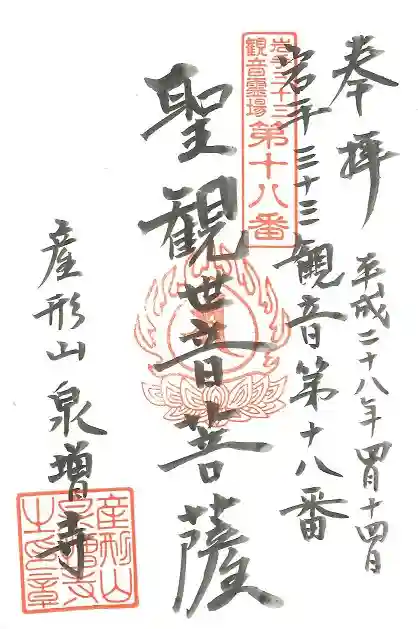 奉拝
平成二十八年四月十四日
岩手三十三観音第十八番
岩手三十三
観音霊場
第十八番
聖観世音菩薩
産形山泉増寺
産形山
泉增寺
之印章